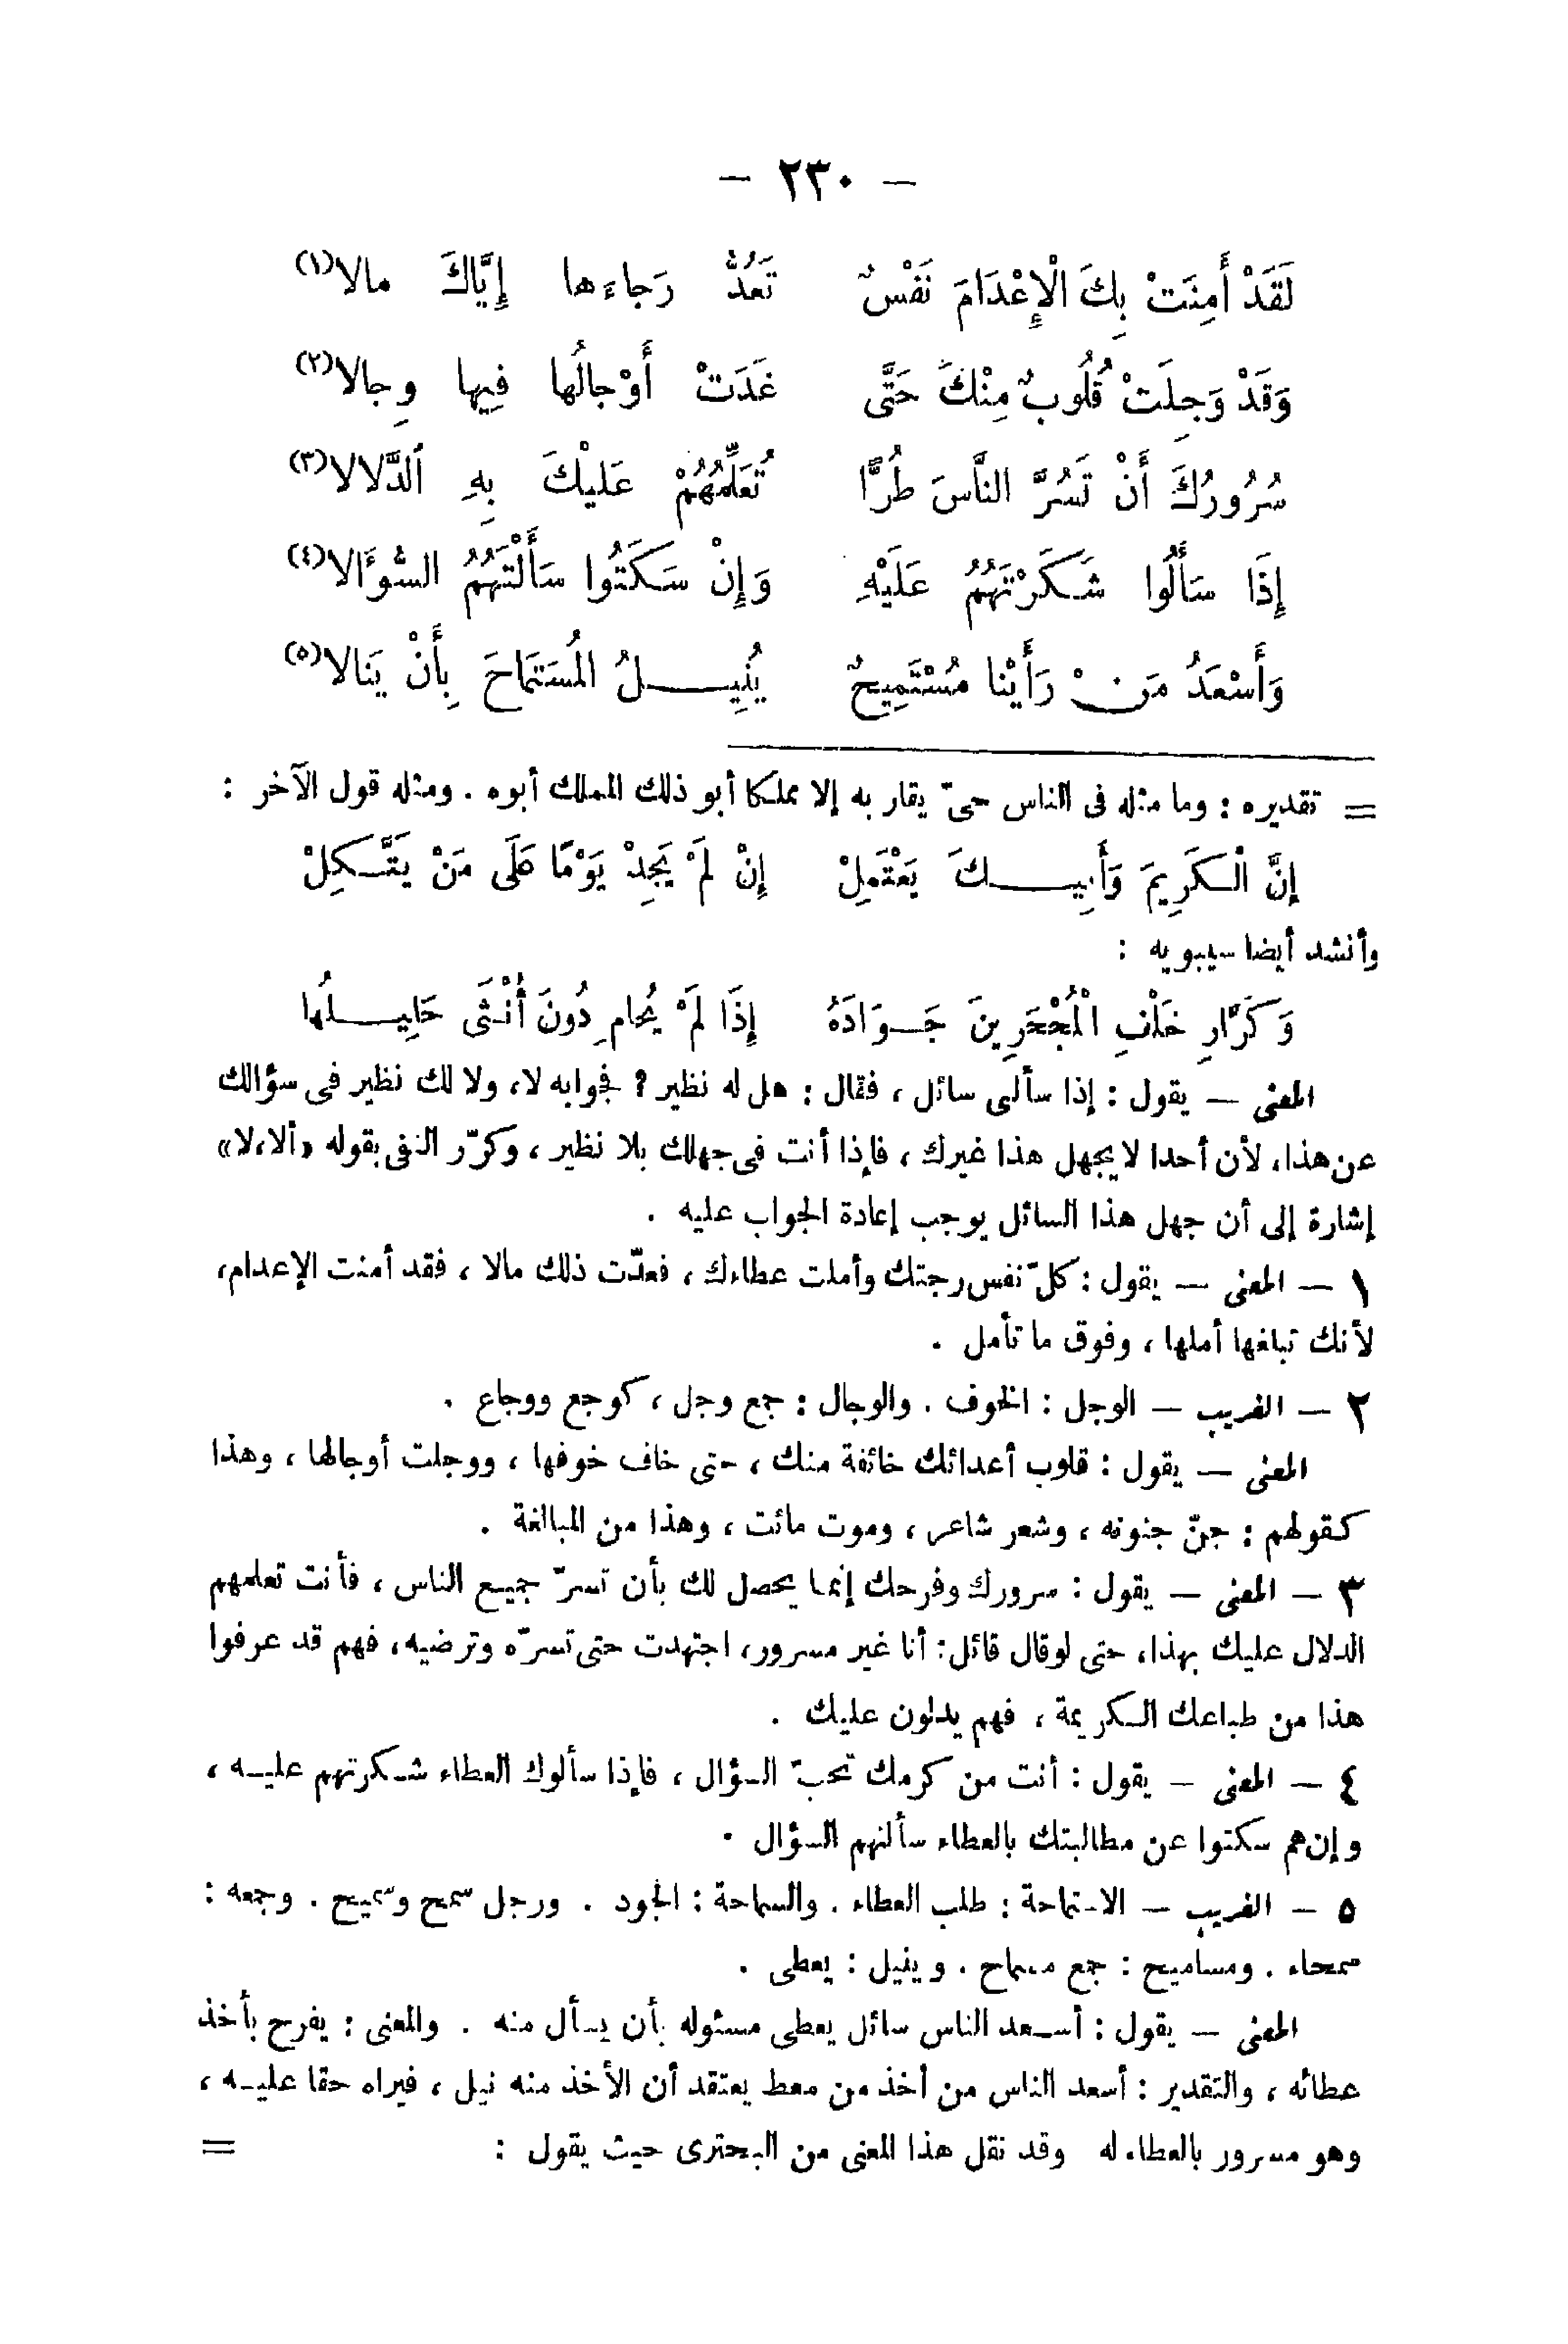 — ٢٣٠ —
لَقَدْ أَمِنَتْ بِكَ الْإِعْدَامَ نَفْسٌ تَعُدُّ رَجاءَها إِيَّاكَ مالا(١)
وَقَدْ وَجِلَتْ قُلُوبٌ مِنْكَ حَتَّى غَدَتْ أَوْجالُها فِيها وِجالا(٢)
سُرُورُكَ أَنْ تَسُرَّ النَّاسَ طُرًّا تُعَلِّمُهُمْ عَلَيْكَ بِهِ الدَّلالا(٣)
إِذَا سَأَلُوا شَكَرْتَهُمُ عَلَيْهِ وَإِنْ سَكَتُوا سَأَلْتَهُمُ السُّؤَالا(٤)
وَأَسْعَدُ مَنْ رَأَيْنا مُسْتَمِيحٌ يُنِيلُ المُسْتَمَاحَ بِأَنْ يَنالا(٥)
= تقديره : وما مثله فى الناس حىّ يقاربه إلا مملكا أبو ذلك المملك أبوه . ومثله قول الآخر :
إِنَّ الْكَرِيمَ وَأَبِيكَ يَعْتَمِلْ إِنْ لَمْ يَجِدْ يَوْمًا عَلَى مَنْ يَتَّكِلْ
وأنشد أيضا سيبويه :
وَكَرَّارِ خَلْفِ الْمُجْحَرِينَ جَوَادَهُ إِذَا لَمْ يُحامِ دُونَ أُنْثَى حَلِيلُها
المعنى — يقول : إذا سألنى سائل ، فقال : هل له نظير ؟ فجوابه لا، ولا لك نظير فى سؤالك
عن هذا، لأن أحدا لا يجهل هذا غيرك ، فإذا أنت فى جهلك بلا نظير ، وكرّر النفى بقوله «ألا،لا»
إشارة إلى أن جهل هذا السائل يوجب إعادة الجواب عليه .
١ — المعنى — يقول : كلّ نفس رجتك وأملت عطاءك ، فعدّت ذلك مالا ، فقد أمنت الإعدام،
لأنك تبلغها أملها ، وفوق ما تأمل .
٢ — الغريب — الوجل : الخوف . والوجال : جمع وجل ، كوجع ووجاع .
المعنى — يقول : قلوب أعدائك خائفة منك ، حتى خاف خوفها ، ووجلت أوجالها ، وهذا
كقولهم : جنّ جنونه ، وشعر شاعر ، وموت مائت ، وهذا من المبالغة .
٣ — المعنى — يقول : سرورك وفرحك إنما يحصل لك بأن تسرّ جميع الناس ، فأنت تعلمهم
الدلال عليك بهذا، حتى لو قال قائل : أنا غير مسرور، اجتهدت حتى تسرّه وترضيه، فهم قد عرفوا
هذا من طباعك الكريمة ، فهم يدلون عليك .
٤ — المعنى — يقول : أنت من كرمك تحبّ السؤال ، فإذا سألوك العطاء شكرتهم عليه ،
وإن هم سكتوا عن مطالبتك بالعطاء سألتهم السؤال .
٥ — الغريب — الاستماحة : طلب العطاء . والسماحة : الجود . ورجل سمح وسميح . وجمعه :
سمحاء . ومساميح : جمع مسماح . وينيل : يعطى .
المعنى — يقول : أسعد الناس سائل يعطى مسئوله بأن يسأل منه . والمعنى : يفرح بأخذ
عطائه ، والتقدير : أسعد الناس من أخذ من معط يعتقد أن الأخذ منه نيل ، فيراه حقا عليه ،
وهو مسرور بالعطاء له وقد نقل هذا المعنى من البحترى حيث يقول : =